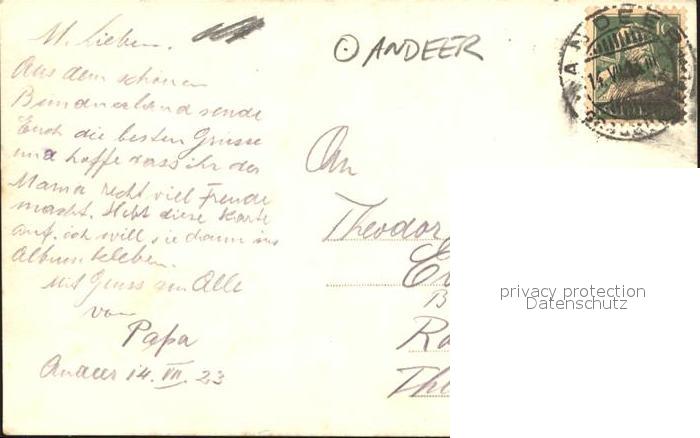 M. Lieben.
Aus dem schönen
Bündnerland sende
Euch die besten Grüsse
und hoffe dass ihr der
Mama recht viel Freude
macht. Hebt diese Karte
auf, ich will sie dann ins
Album kleben.
Mit Gruss an Alle
von
Papa
Andeer 14. VII. 23
⊙ ANDEER
ANDEER
10
An
Theodor
B
Ra
privacy protection
Datenschutz